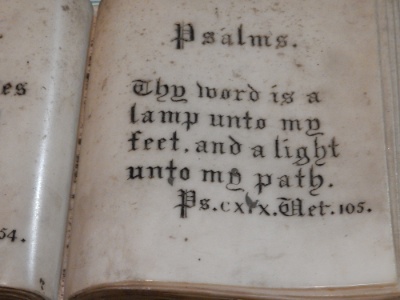 es
54.
Psalms.
Thy word is a
lamp unto my
feet, and a light
unto my path.
Ps. cxix. Vet. 105.